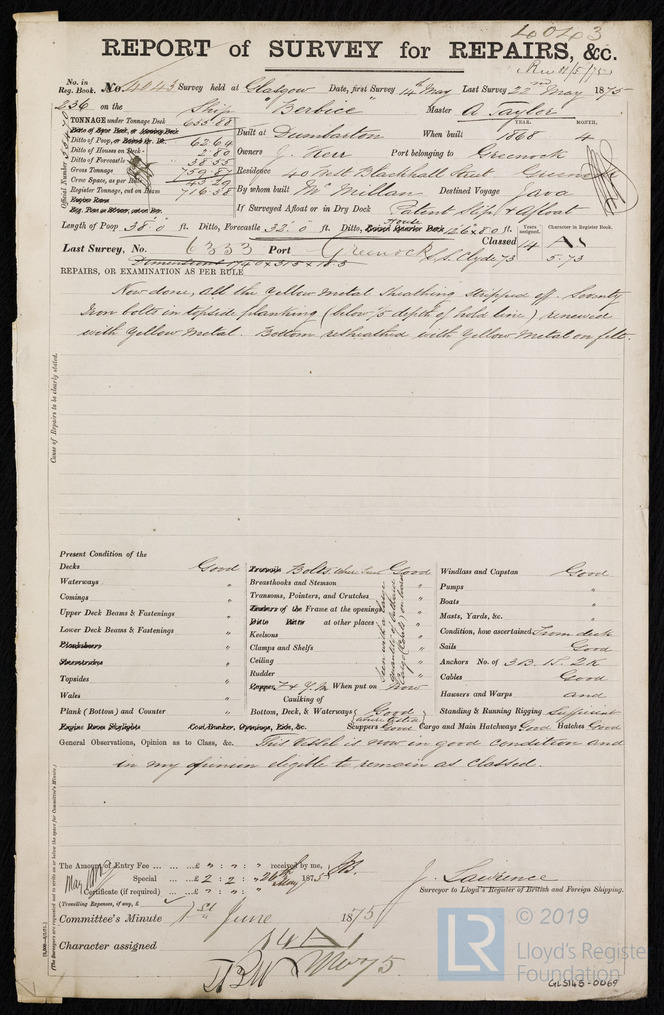 4043
REPORT of SURVEY for REPAIRS, &c.
No. in Reg. Book. No. 4043 Survey held at Glasgow Date, first Survey 14th May Last Survey 22nd May 1875
236 on the Ship "Berbice" Master A Taylor
TONNAGE under Tonnage Deck 655.88
Ditto of Poop, 62.64
Ditto of Houses on Deck 2.80
Ditto of Forecastle 38.55
Gross Tonnage 759.87
Crew Space, as per 43.29
Register Tonnage, cut on Beam 716.58
Official Number
YEAR. MONTH.
Built at Dumbarton When built 1868 4
Owners J. Kerr Port belonging to Greenock
Residence 40 West Blackhall Street Greenock
By whom built McMillan Destined Voyage Java
If Surveyed Afloat or in Dry Dock Patent Slip & Afloat
Length of Poop 38.0 ft. Ditto, Forecastle 32.0 ft. Ditto, House ft.
Last Survey, No. 6333 Port Greenock Classed 14 A1
Years assigned. Character in Register Book.
5.73
REPAIRS, OR EXAMINATION AS PER RULE
Now done, All the Yellow Metal Sheathing stripped off.
Iron bolts in topside planking (below 1/5 depth of hold line) renewed
with Yellow Metal. Bottom resheathed with Yellow Metal on felt.
Cause of Repairs to be clearly stated.
Present Condition of the
Decks Good
Waterways "
Comings "
Upper Deck Beams & Fastenings "
Lower Deck Beams & Fastenings "
Planksheers
Sheerstrakes
Topsides "
Wales "
Plank (Bottom) and Counter "
Engine Room Skylights Coal Bunker, Openings, Lids, &c.
Treenails Bolts where seen Good
Breasthooks and Stemson "
Transoms, Pointers, and Crutches "
Timbers of the Frame at the openings "
Ditto Ditto at other places "
Keelsons "
Clamps and Shelfs "
Ceiling "
Rudder "
Copper F & Y.M When put on Now
Caulking of
Bottom, Deck, & Waterways Good
Scuppers Good Cargo and Main Hatchways Good Hatches Good
Windlass and Capstan Good
Pumps "
Boats "
Masts, Yards, &c. "
Condition, how ascertained From deck
Sails Good
Anchors No. of 3 B. 1 S. 2 K
Cables Good
Hawsers and Warps and
Standing & Running Rigging Sufficient
General Observations, Opinion as to Class, &c. This Vessel is now in good condition and
in my opinion eligible to remain as classed.
The Amount of Entry Fee ... ... ... £ " : " : " received by me,
Special ... ... £ 2 : 2 : " 26th May 1875
Certificate (if required) ... £ " : " : "
(Travelling Expenses, if any, £ )
J. Lawrence
Surveyor to Lloyd's Register of British and Foreign Shipping.
Committee's Minute 1st June 1875
Character assigned 14 A 1
(The Surveyors are requested not to write on or below the space for Committee's Minute.)
LR
© 2019
Lloyd's Register
Foundation
GLS145-0069